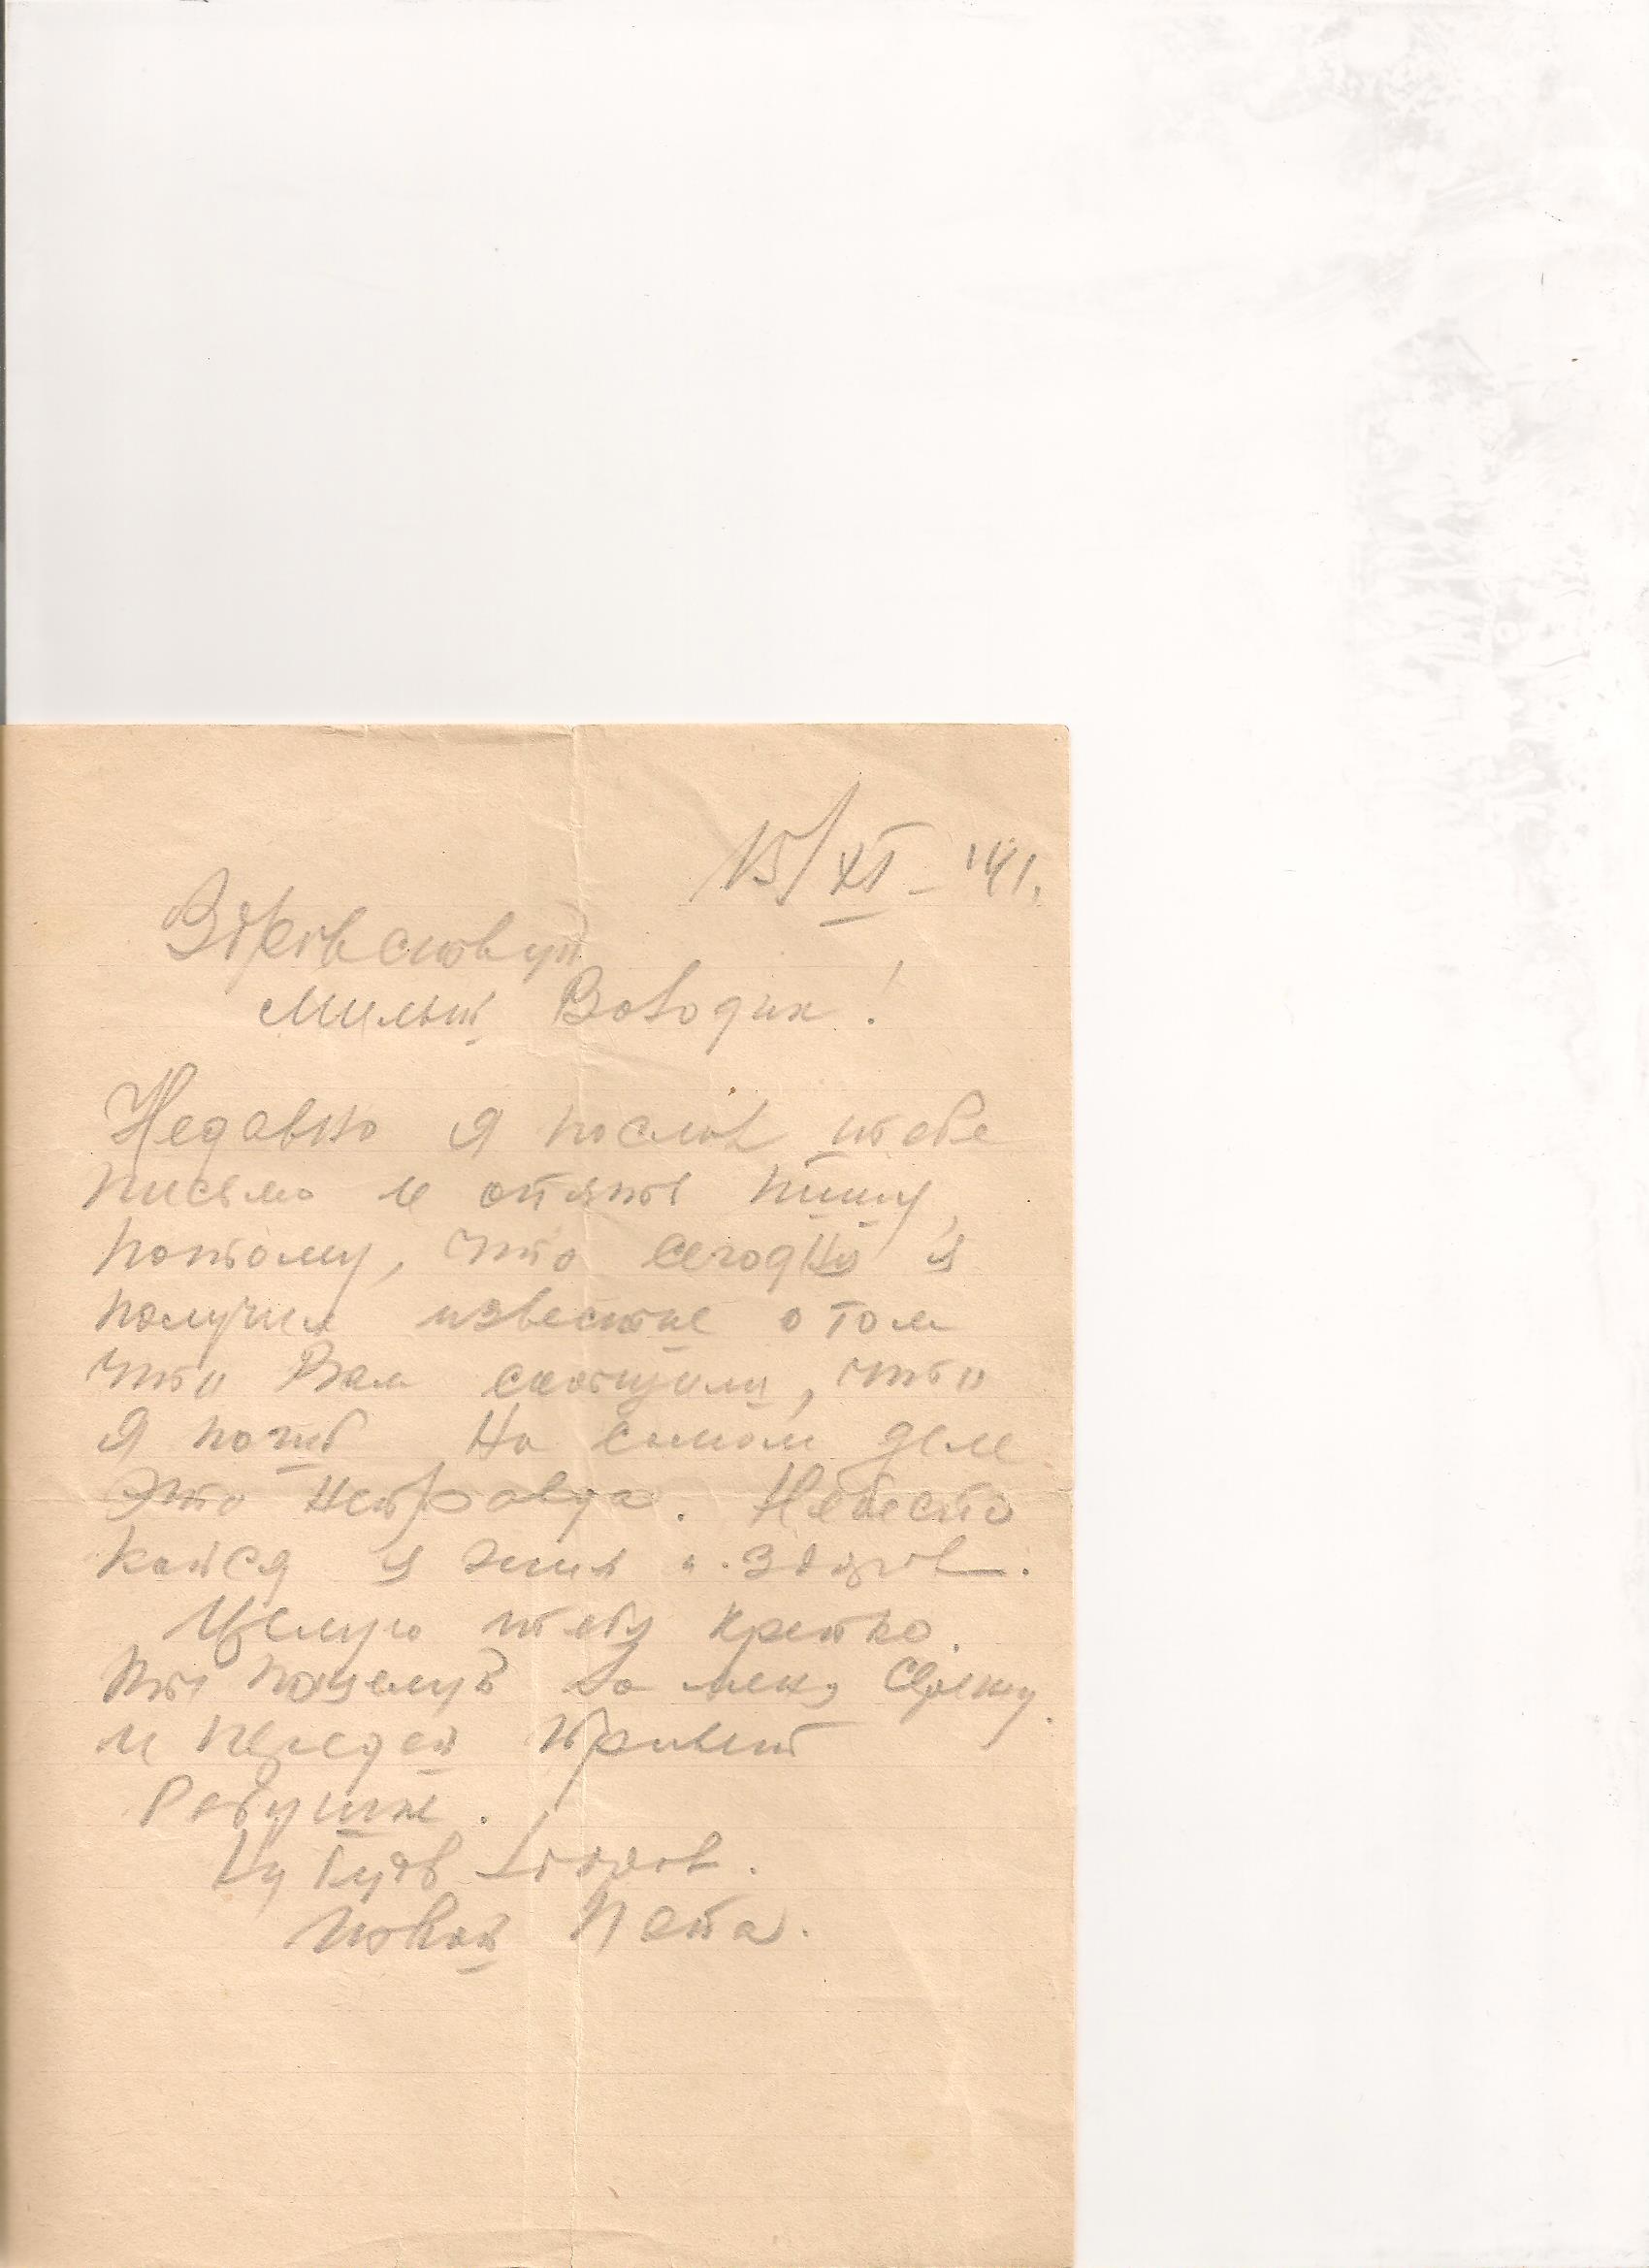 15/XI – 41.
Здравствуй
милый Вовочка!
Недавно я послал тебе
письмо и опять пишу,
потому, что сегодня я
получил известие о том
что Вам сообщили, что
я погиб На самом деле
это неправда. Не беспо
койся я жив и здоров.
Целую тебя крепко.
ты поцелуй за меня
и передай привет
Ну будь здоров.
твой Папа.